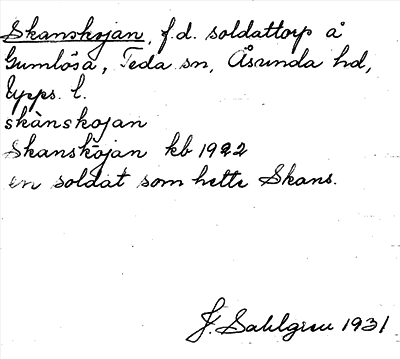 Skanskojan, f.d. soldattorp å
Gumlösa, Teda sn, Åsunda hd,
Upps. l.
skànskojan
Skanskojan kb 1922
en soldat som hette Skans.
J. Sahlgren 1931